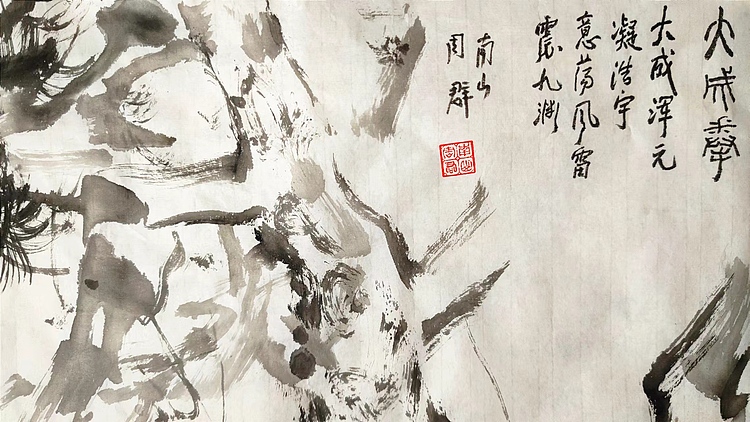 大成拳
大成浑元
凝浩宇
意荡风雷
震九渊
南山
周群